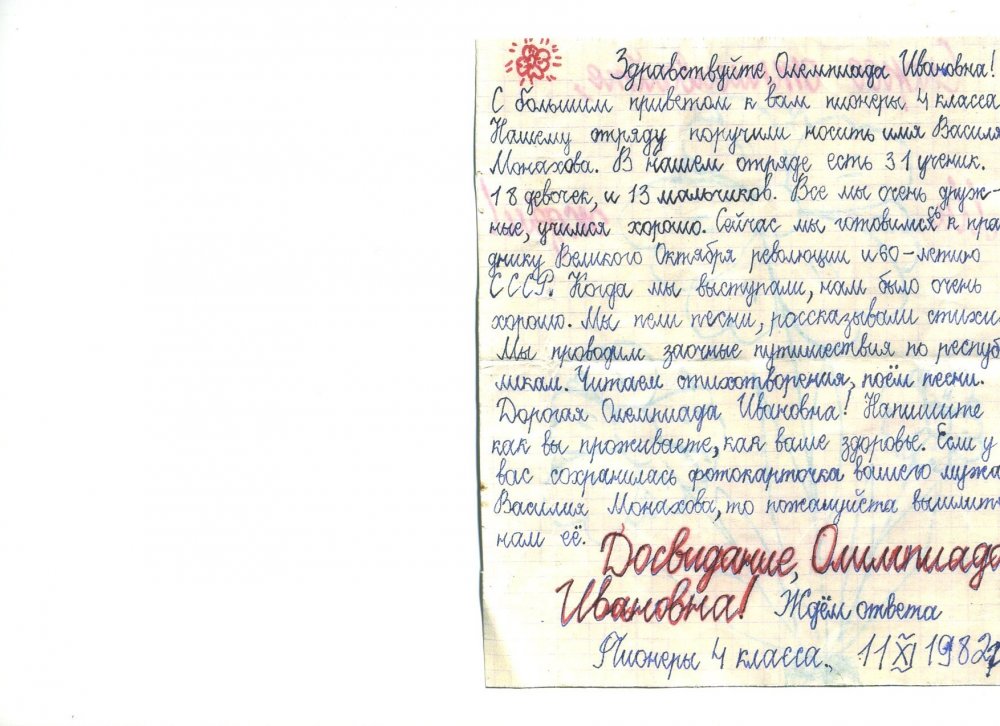 Здравствуйте, Олемпиада Ивановна!
С большим приветом к вам пионеры 4 класса
Нашему отряду поручили носить имя Василия
Монахова. В нашем отряде есть 31 ученик.
18 девочек, и 13 мальчиков. Все мы очень друж-
ные, учимся хорошо. Сейчас мы готовимся к пра
днику Великого Октября революции и 60-летию
СССР. Когда мы выступали, нам было очень
хорошо. Мы пели песни, россказывали стихи.
Мы проводим заочные путишествия по респуб
ликам. Читаем стихотворения, поём песни.
Дорогая Олемпиада Ивановна! Напишите
как вы проживаете, как ваше здоровье. Если у
вас сохранилась фотокарточка вашего мужа
Василия Монахова, то пожалуйста вышлите
нам её.
Досвидание, Олимпиада
Ивановна! Ждём ответа
Пионеры 4 класса. 11 XI 1982